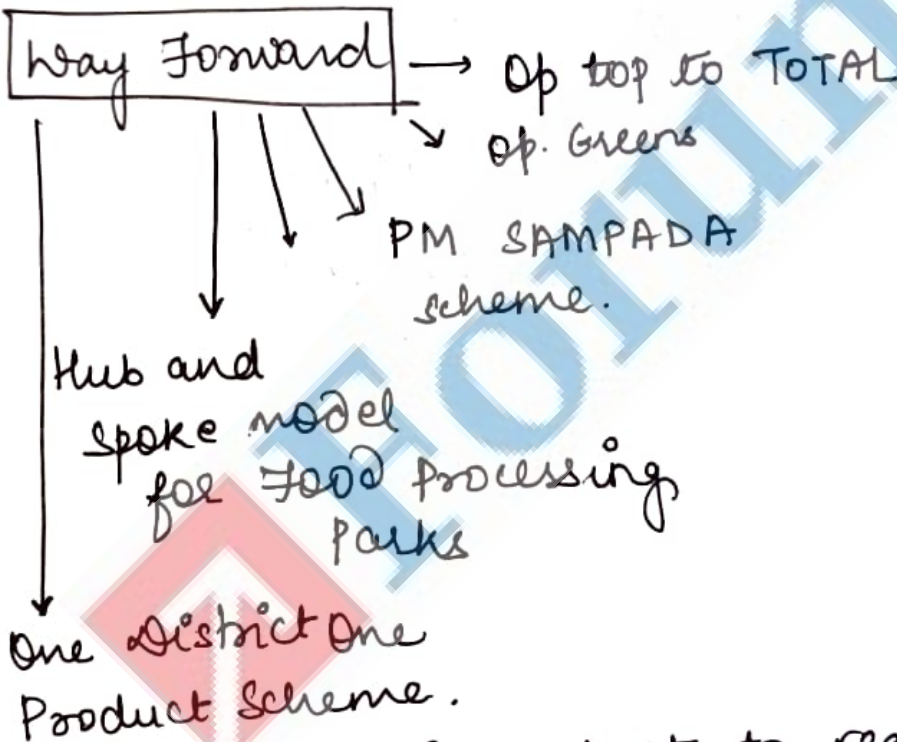 Way Forward → Op top to TOTAL
Op. Greens
PM SAMPADA
scheme.
Hub and
spoke model
for Food Processing
Parks
One District One
Product Scheme.
Forum